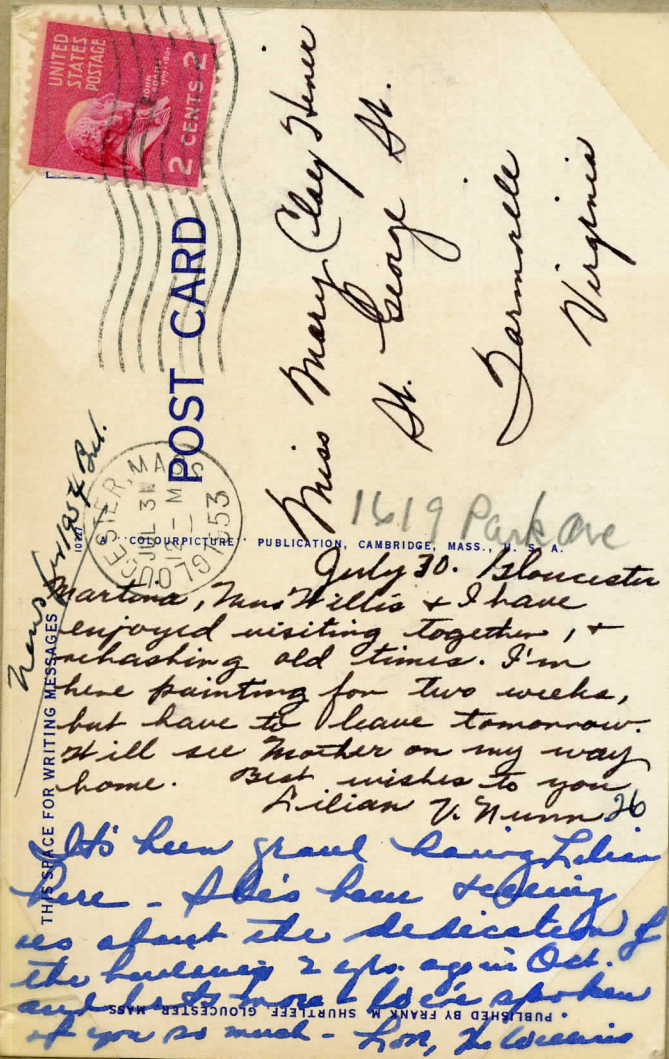 UNITED
STATES
POSTAGE
JOHN
ADAMS
1797-1801
2 CENTS 2
POST CARD
GLOUCESTER, MASS
JUL 31
12 - M
1953
Miss Mary Clay Hiner
St. George St.
Farmville
Virginia
1619 Park Ave
News 1954 Bul.
A "COLOURPICTURE" PUBLICATION, CAMBRIDGE, MASS., U. S. A.
THIS SPACE FOR WRITING MESSAGES
July 30. Gloucester
Martina, Mrs Willis & I have
enjoyed visiting together, &
rehashing old times. I'm
here painting for two weeks,
but have to leave tomorrow.
Will see Mother on my way
home. Best wishes to you
Lilian V. Nunn 26
It's been grand having Lilian
here - She's been telling
us about the dedication of
the building 2 yrs. ago in Oct.
and lots more - We've spoken
of you so much - Love,
PUBLISHED BY FRANK M. SHURTLEFF, GLOUCESTER, MASS.